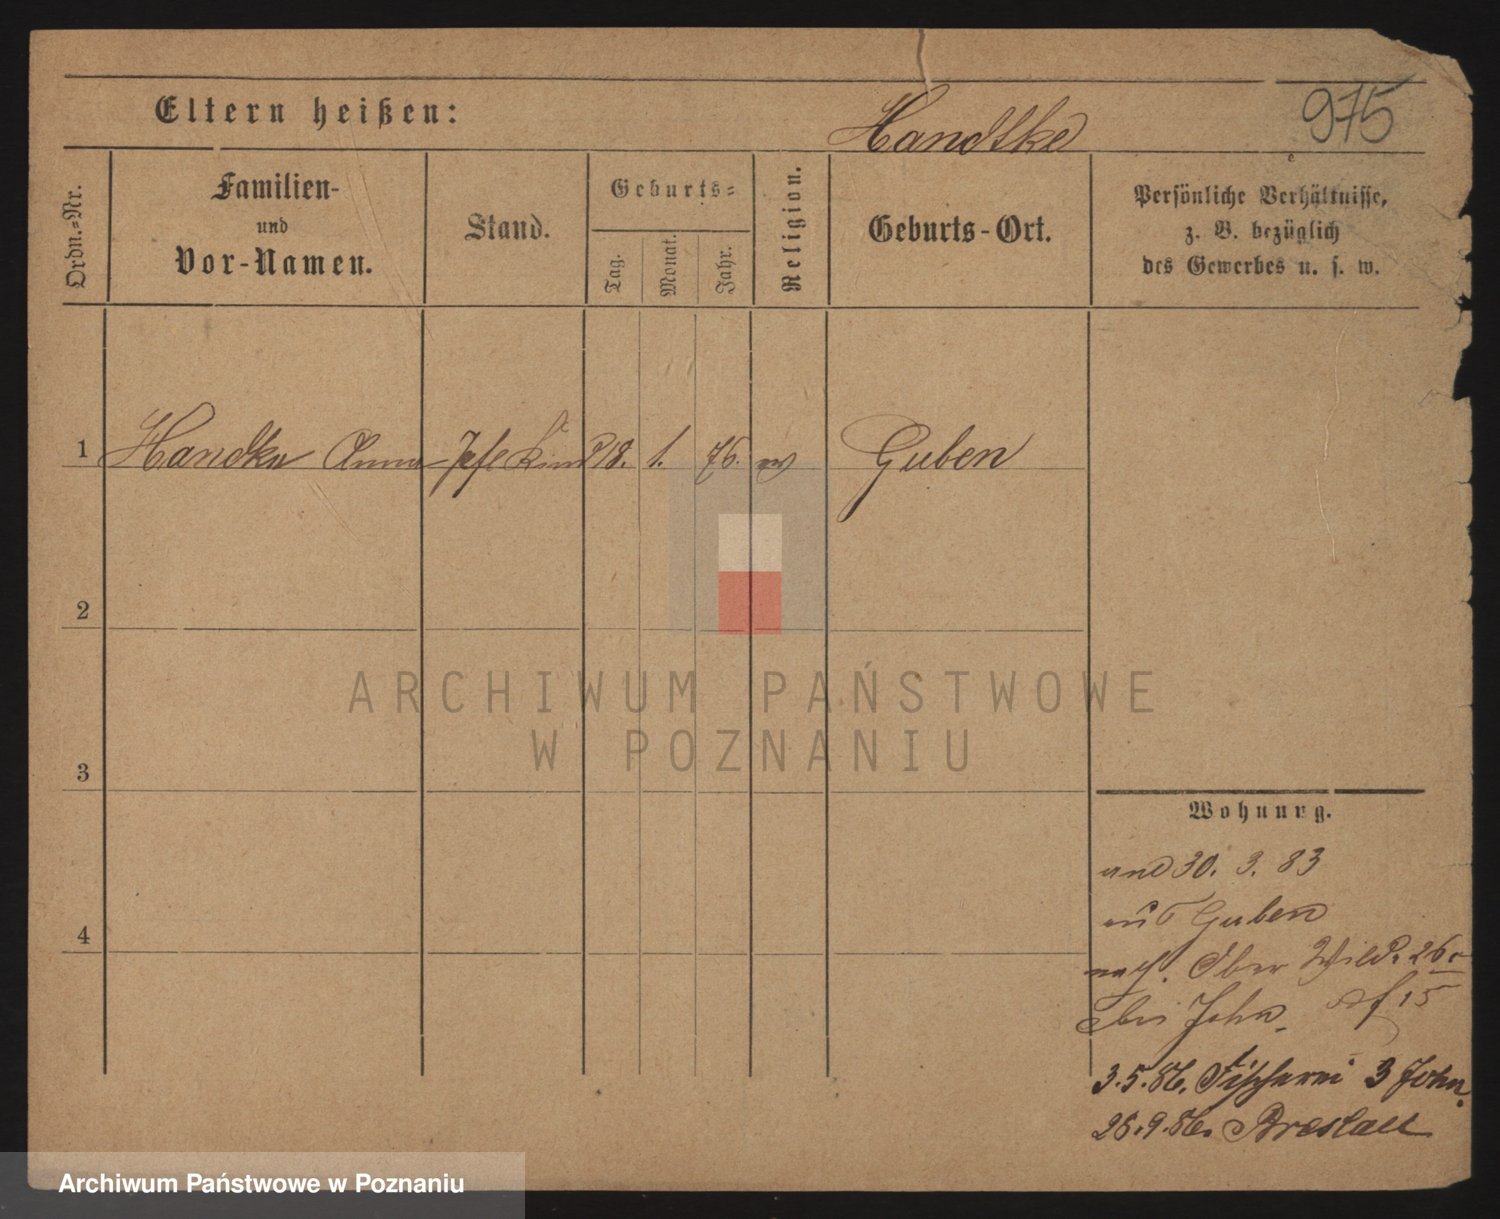 975
Eltern heißen:
Handtke
Ordn.-Nr.
Familien-
und
Vor-Namen.
Stand.
Geburts-
Tag.
Monat.
Jahr.
Religion.
Geburts-Ort.
Persönliche Verhältnisse,
z. B. bezüglich
des Gewerbes u. s. w.
1 Handke Anna Kind 18. 1. 76. Guben
2
3
4
ARCHIWUM PAŃSTWOWE
W POZNANIU
Wohnung.
30. 3. 83
aus Guben
nach. Ober Wild. 26
bei John. 15
3.5.86. Fischerei 3 John.
26.9.86. Breslau
Archiwum Państwowe w Poznaniu